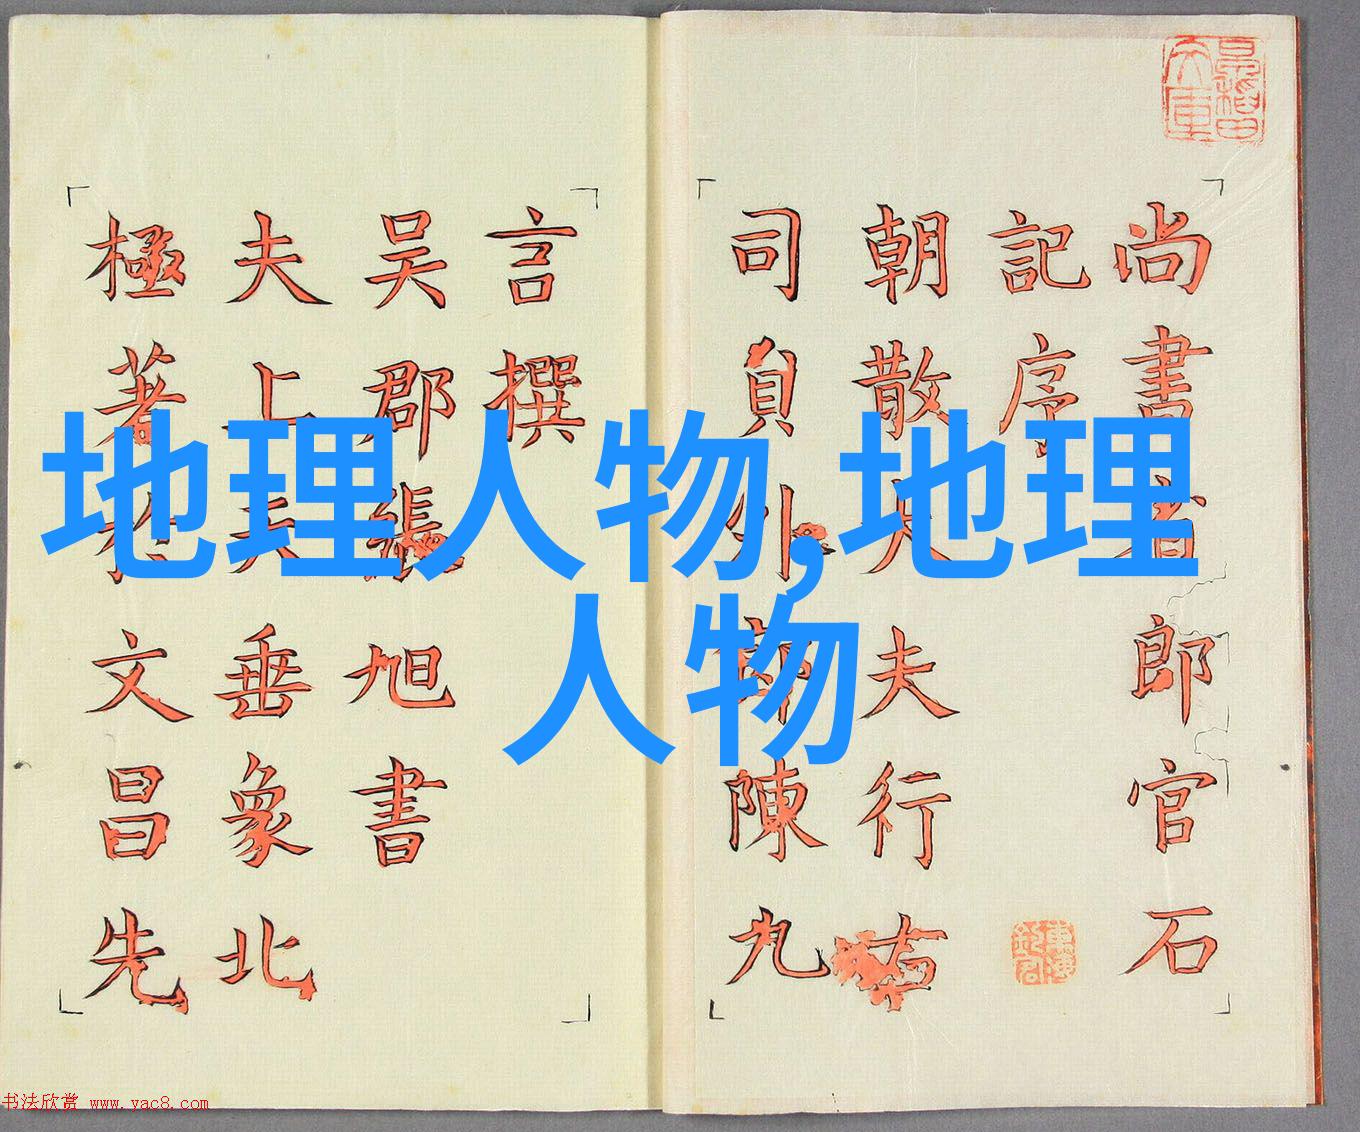 地理人物,地理
人物
尚書省郎官石
記序
朝散大夫行右
司員外郎陳九
言撰
吴郡張旭書
夫上天垂象北
極著於文昌先
书法欣赏 www.yac8.com